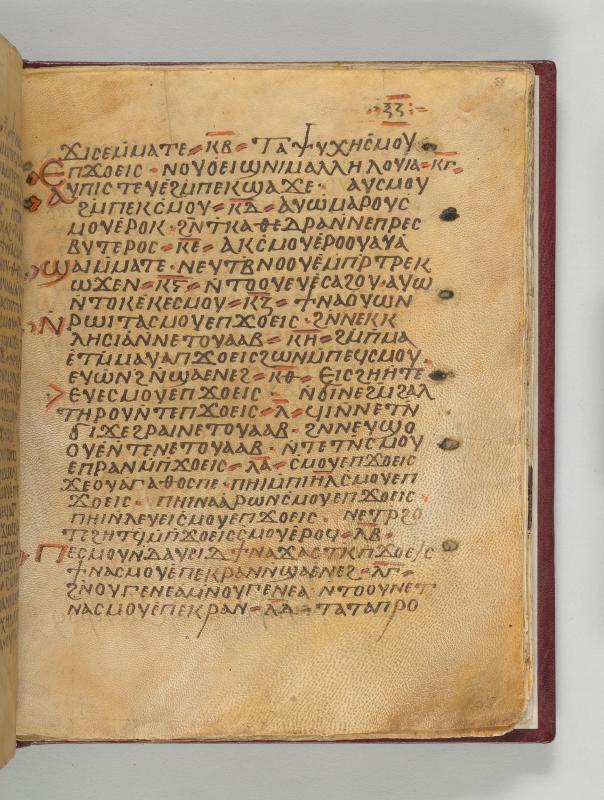 ⲝⲍ
ϫⲓⲥⲉⲙⲙⲁⲧⲉ ⲕⲃ ⲧⲁⲯⲩⲭⲏⲥⲙⲟⲩ
ⲉⲡϫⲟⲉⲓⲥ · ⲛⲟⲩⲟⲉⲓⲱⲛⲓⲙⲁⲗⲗⲏⲗⲟⲩⲓⲁ ⲕⲅ
ⲁⲩⲡⲓⲥⲧⲉⲩⲉϩⲙⲡⲉⲕϣⲁϫⲉ · ⲁⲩⲥⲙⲟⲩ
ϩⲙⲡⲉⲕⲥⲙⲟⲩ ⲕⲇ ⲁⲩⲱⲙⲁⲣⲟⲩⲥ
ⲙⲟⲩⲉⲣⲟⲕ · ϩⲛⲧⲕⲁⲑⲉⲇⲣⲁⲛⲛⲉⲡⲣⲉⲥ
ⲃⲩⲧⲉⲣⲟⲥ ⲕⲉ ⲁⲕⲥⲙⲟⲩⲉⲣⲟⲟⲩⲁⲩⲁ
ϣⲁⲓⲙⲙⲁⲧⲉ · ⲛⲉⲩⲧⲃⲛⲟⲟⲩⲉⲙⲡⲣⲧⲣⲉⲕ
ⲱϫⲉⲛ ⲕⲋ ⲛⲧⲟⲟⲩⲉⲩⲉⲥⲁϩⲟⲩ · ⲁⲩⲱ
ⲛⲧⲟⲕⲉⲕⲉⲥⲙⲟⲩ ⲕⲍ ϯⲛⲁⲟⲩⲱⲛ
ⲛⲣⲱⲓⲧⲁⲥⲙⲟⲩⲉⲡϫⲟⲉⲓⲥ · ϩⲛⲛⲉⲕⲕ
ⲗⲏⲥⲓⲁⲛⲛⲉⲧⲟⲩⲁⲁⲃ ⲕⲏ ϩⲙⲡⲙⲁ
ⲉⲧⲙⲙⲁⲩⲁⲡϫⲟⲉⲓⲥϩⲱⲛⲙⲡⲉϥⲥⲙⲟⲩ
ⲉⲩⲱⲛϩⲛϣⲁⲉⲛⲉϩ ⲕⲑ ⲉⲓⲥϩⲏⲏⲧⲉ
ⲉⲩⲉⲥⲙⲟⲩⲉⲡϫⲟⲉⲓⲥ · ⲛϭⲓⲛⲉϩⲙϩⲁⲗ
ⲧⲏⲣⲟⲩⲛⲧⲉⲡϫⲟⲉⲓⲥ ⲗ ϥⲓⲛⲛⲉⲧⲛ
ϭⲓϫⲉϩⲣⲁⲓⲛⲉⲧⲟⲩⲁⲁⲃ · ϩⲛⲛⲉⲩϣⲟ
ⲟⲩⲉⲛⲧⲉⲛⲉⲧⲟⲩⲁⲁⲃ · ⲛⲧⲉⲧⲛⲥⲙⲟⲩ
ⲉⲡⲣⲁⲛⲙⲡϫⲟⲉⲓⲥ ⲗⲁ ⲥⲙⲟⲩⲉⲡϫⲟⲉⲓⲥ
ϫⲉⲟⲩⲁⲅⲁⲑⲟⲥⲡⲉ · ⲡⲏⲓⲙⲡⲓⲏⲗⲥⲙⲟⲩⲉⲡ
ϫⲟⲉⲓⲥ · ⲡⲏⲓⲛⲁⲁⲣⲱⲛⲥⲙⲟⲩⲉⲡϫⲟⲉⲓⲥ
ⲡⲏⲓⲛⲗⲉⲩⲉⲓⲥⲙⲟⲩⲉⲡϫⲟⲉⲓⲥ · ⲛⲉⲧⲣϩⲟ
ⲧⲉϩⲏⲧϥⲙⲡϫⲟⲉⲓⲥⲥⲙⲟⲩⲉⲣⲟϥ ⲗⲃ
ⲡⲉⲥⲙⲟⲩⲛⲇⲁⲩⲉⲓⲇ ϯⲛⲁϫⲁⲥⲧⲕⲡϫⲟⲉⲓⲥ
ϯⲛⲁⲥⲙⲟⲩⲉⲡⲉⲕⲣⲁⲛⲛϣⲁⲉⲛⲉϩ ⲗⲅ
ϩⲛⲟⲩⲅⲉⲛⲉⲁⲙⲛⲟⲩⲅⲉⲛⲉⲁ ⲛⲧⲟⲟⲩⲛⲉⲧ
ⲛⲁⲥⲙⲟⲩⲉⲡⲉⲕⲣⲁⲛ ⲗⲇ ⲧⲁⲧⲁⲡⲣⲟ